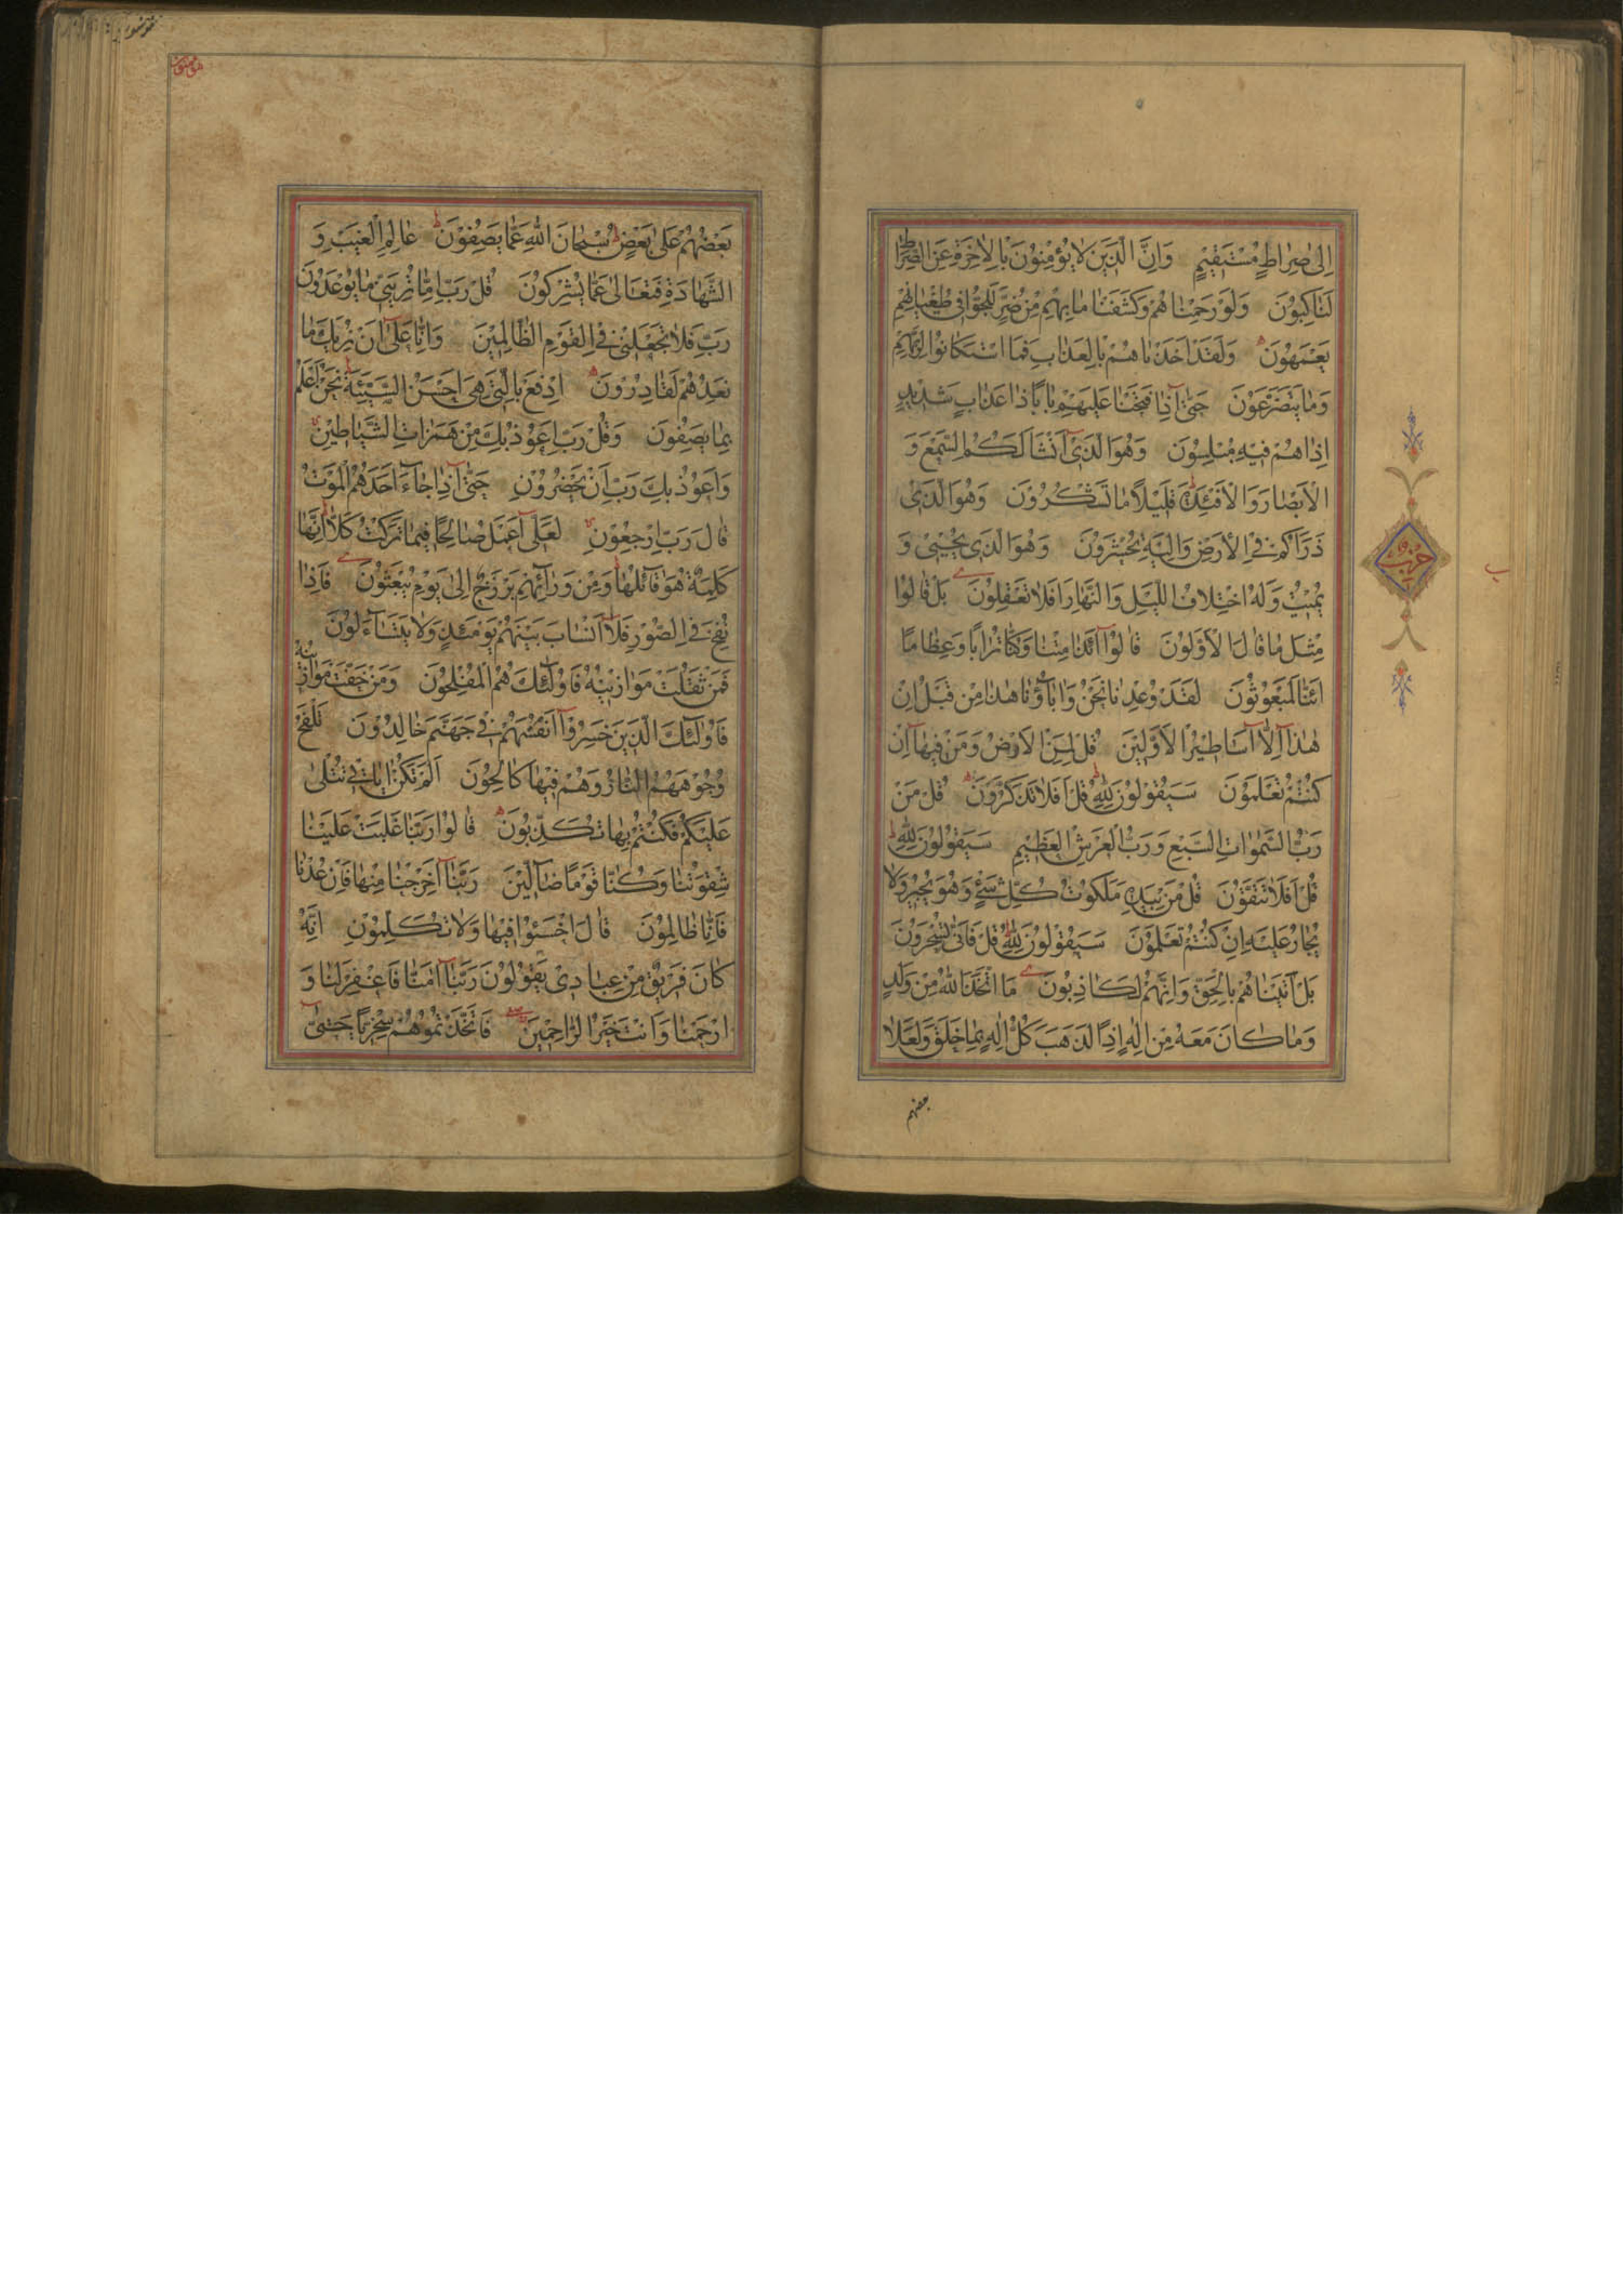 إِلىٰ صِرَاطٍ مُسْتَقِيمٍ وَإِنَّ الَّذِينَ لَا يُؤْمِنُونَ بِالْآخِرَةِ عَنِ الصِّرَاطِ
لَنَاكِبُونَ وَلَوْ رَحِمْنَاهُمْ وَكَشَفْنَا مَا بِهِمْ مِنْ ضُرٍّ لَلَجُّوا فِي طُغْيَانِهِمْ
يَعْمَهُونَ وَلَقَدْ أَخَذْنَاهُمْ بِالْعَذَابِ فَمَا اسْتَكَانُوا لِرَبِّهِمْ
وَمَا يَتَضَرَّعُونَ حَتّىٰ إِذَا فَتَحْنَا عَلَيْهِمْ بَابًا ذَا عَذَابٍ شَدِيدٍ
إِذَا هُمْ فِيهِ مُبْلِسُونَ وَهُوَ الَّذِي أَنْشَأَ لَكُمُ السَّمْعَ وَ
الْأَبْصَارَ وَالْأَفْئِدَةَ قَلِيلًا مَا تَشْكُرُونَ وَهُوَ الَّذِي
ذَرَأَكُمْ فِي الْأَرْضِ وَإِلَيْهِ تُحْشَرُونَ وَهُوَ الَّذِي يُحْيِي وَ
يُمِيتُ وَلَهُ اخْتِلَافُ اللَّيْلِ وَالنَّهَارِ أَفَلَا تَعْقِلُونَ بَلْ قَالُوا
مِثْلَ مَا قَالَ الْأَوَّلُونَ قَالُوا أَئِذَا مِتْنَا وَكُنَّا تُرَابًا وَعِظَامًا
أَئِنَّا لَمَبْعُوثُونَ لَقَدْ وُعِدْنَا نَحْنُ وَآبَاؤُنَا هٰذَا مِنْ قَبْلُ إِنْ
هٰذَا إِلَّا أَسَاطِيرُ الْأَوَّلِينَ قُلْ لِمَنِ الْأَرْضُ وَمَنْ فِيهَا إِنْ
كُنْتُمْ تَعْلَمُونَ سَيَقُولُونَ لِلّٰهِ قُلْ أَفَلَا تَذَكَّرُونَ قُلْ مَنْ
رَبُّ السَّمٰوَاتِ السَّبْعِ وَرَبُّ الْعَرْشِ الْعَظِيمِ سَيَقُولُونَ لِلّٰهِ
قُلْ أَفَلَا تَتَّقُونَ قُلْ مَنْ بِيَدِهِ مَلَكُوتُ كُلِّ شَيْءٍ وَهُوَ يُجِيرُ وَلَا
يُجَارُ عَلَيْهِ إِنْ كُنْتُمْ تَعْلَمُونَ سَيَقُولُونَ لِلّٰهِ قُلْ فَأَنّىٰ تُسْحَرُونَ
بَلْ أَتَيْنَاهُمْ بِالْحَقِّ وَإِنَّهُمْ لَكَاذِبُونَ مَا اتَّخَذَ اللّٰهُ مِنْ وَلَدٍ
وَمَا كَانَ مَعَهُ مِنْ إِلٰهٍ إِذًا لَذَهَبَ كُلُّ إِلٰهٍ بِمَا خَلَقَ وَلَعَلَا
بعضهم
حزب
بَعْضُهُمْ عَلىٰ بَعْضٍ سُبْحَانَ اللّٰهِ عَمَّا يَصِفُونَ عَالِمِ الْغَيْبِ وَ
الشَّهَادَةِ فَتَعَالىٰ عَمَّا يُشْرِكُونَ قُلْ رَبِّ إِمَّا تُرِيَنِّي مَا يُوعَدُونَ
رَبِّ فَلَا تَجْعَلْنِي فِي الْقَوْمِ الظَّالِمِينَ وَإِنَّا عَلىٰ أَنْ نُرِيَكَ مَا
نَعِدُهُمْ لَقَادِرُونَ ادْفَعْ بِالَّتِي هِيَ أَحْسَنُ السَّيِّئَةَ نَحْنُ أَعْلَمُ
بِمَا يَصِفُونَ وَقُلْ رَبِّ أَعُوذُ بِكَ مِنْ هَمَزَاتِ الشَّيَاطِينِ
وَأَعُوذُ بِكَ رَبِّ أَنْ يَحْضُرُونِ حَتّىٰ إِذَا جَاءَ أَحَدَهُمُ الْمَوْتُ
قَالَ رَبِّ ارْجِعُونِ لَعَلِّي أَعْمَلُ صَالِحًا فِيمَا تَرَكْتُ كَلَّا إِنَّهَا
كَلِمَةٌ هُوَ قَائِلُهَا وَمِنْ وَرَائِهِمْ بَرْزَخٌ إِلىٰ يَوْمِ يُبْعَثُونَ فَإِذَا
نُفِخَ فِي الصُّورِ فَلَا أَنْسَابَ بَيْنَهُمْ يَوْمَئِذٍ وَلَا يَتَسَاءَلُونَ
فَمَنْ ثَقُلَتْ مَوَازِينُهُ فَأُولٰئِكَ هُمُ الْمُفْلِحُونَ وَمَنْ خَفَّتْ مَوَازِينُهُ
فَأُولٰئِكَ الَّذِينَ خَسِرُوا أَنْفُسَهُمْ فِي جَهَنَّمَ خَالِدُونَ تَلْفَحُ
وُجُوهَهُمُ النَّارُ وَهُمْ فِيهَا كَالِحُونَ أَلَمْ تَكُنْ آيَاتِي تُتْلىٰ
عَلَيْكُمْ فَكُنْتُمْ بِهَا تُكَذِّبُونَ قَالُوا رَبَّنَا غَلَبَتْ عَلَيْنَا
شِقْوَتُنَا وَكُنَّا قَوْمًا ضَالِّينَ رَبَّنَا أَخْرِجْنَا مِنْهَا فَإِنْ عُدْنَا
فَإِنَّا ظَالِمُونَ قَالَ اخْسَئُوا فِيهَا وَلَا تُكَلِّمُونِ إِنَّهُ
كَانَ فَرِيقٌ مِنْ عِبَادِي يَقُولُونَ رَبَّنَا آمَنَّا فَاغْفِرْ لَنَا وَ
ارْحَمْنَا وَأَنْتَ خَيْرُ الرَّاحِمِينَ فَاتَّخَذْتُمُوهُمْ سِخْرِيًّا حَتّىٰ